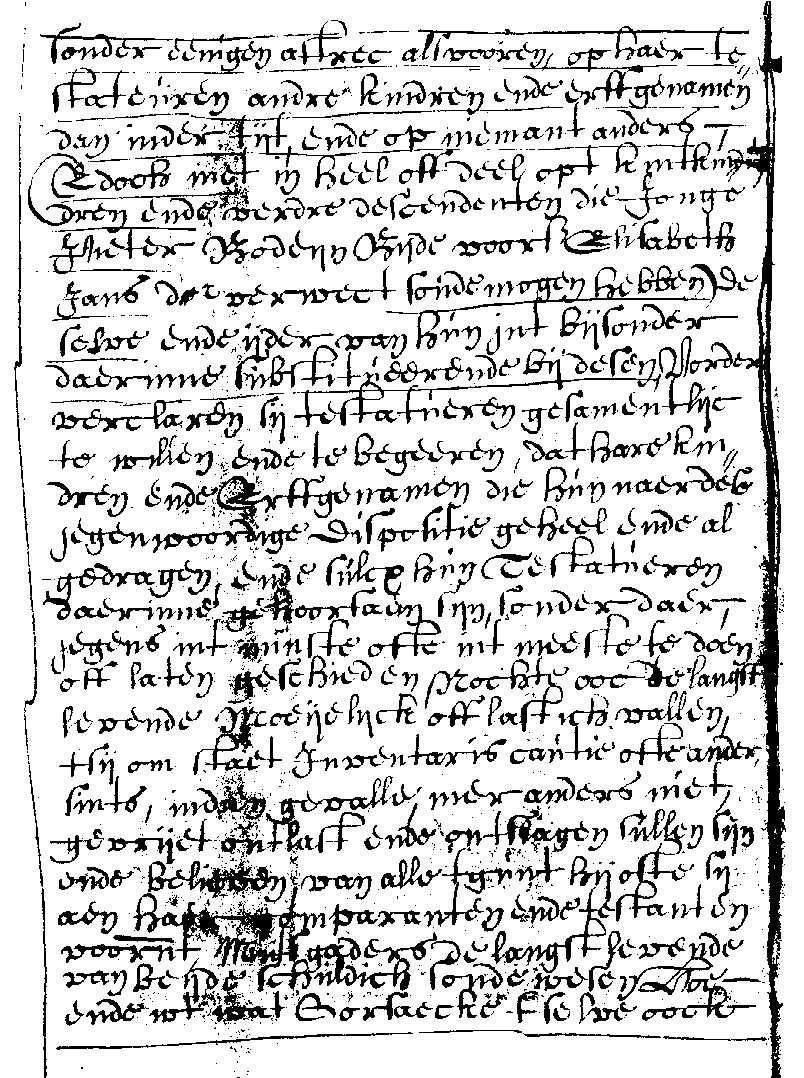 sonder eenigen aftrec als vooren, op haer te„
stateuren andre kindren ende erffgenamen
dan inder tijt, ende op niemant anders –
Edoch niet in heel off deel opt kintkin
dren ende verdre descendenten die Jonge
Pieter Bodeijn Bijde voors Elisabeth
Jans der verwect soude mogen hebben) de
selve ende ijder van hun int bijsonder
daerinne substitueerende bij desen, Vorder
verclaren sij testatueren gesamentlijc
te willen ende te begeeren, dat hare kin„
dren ende Erffgenamen die hun naer dese
jegenwoordige dispositie geheel ende al
gedragen, ende sulcx hun Testatueren
daerinne gehoorsaem sijn, sonder daer,
jegens int minste ofte int meeste te doen
off laten geschieden Nochte ooc de langst
levende Moeijelijck off lastich vallen,
tsij om staet Inventaris cautie ofte ander
sints, indien gevalle, mer anders niet,
gevrijet ontlast ende ontslagen sullen sijn
ende believen, van alle tgunt hij ofte sij
aen haer comparanten ende testanten
voornt, midtsgaders de langstlevende
van beijde schuldich soude wesen Hoe
ende wt wat Oorsaecke t'selve oock